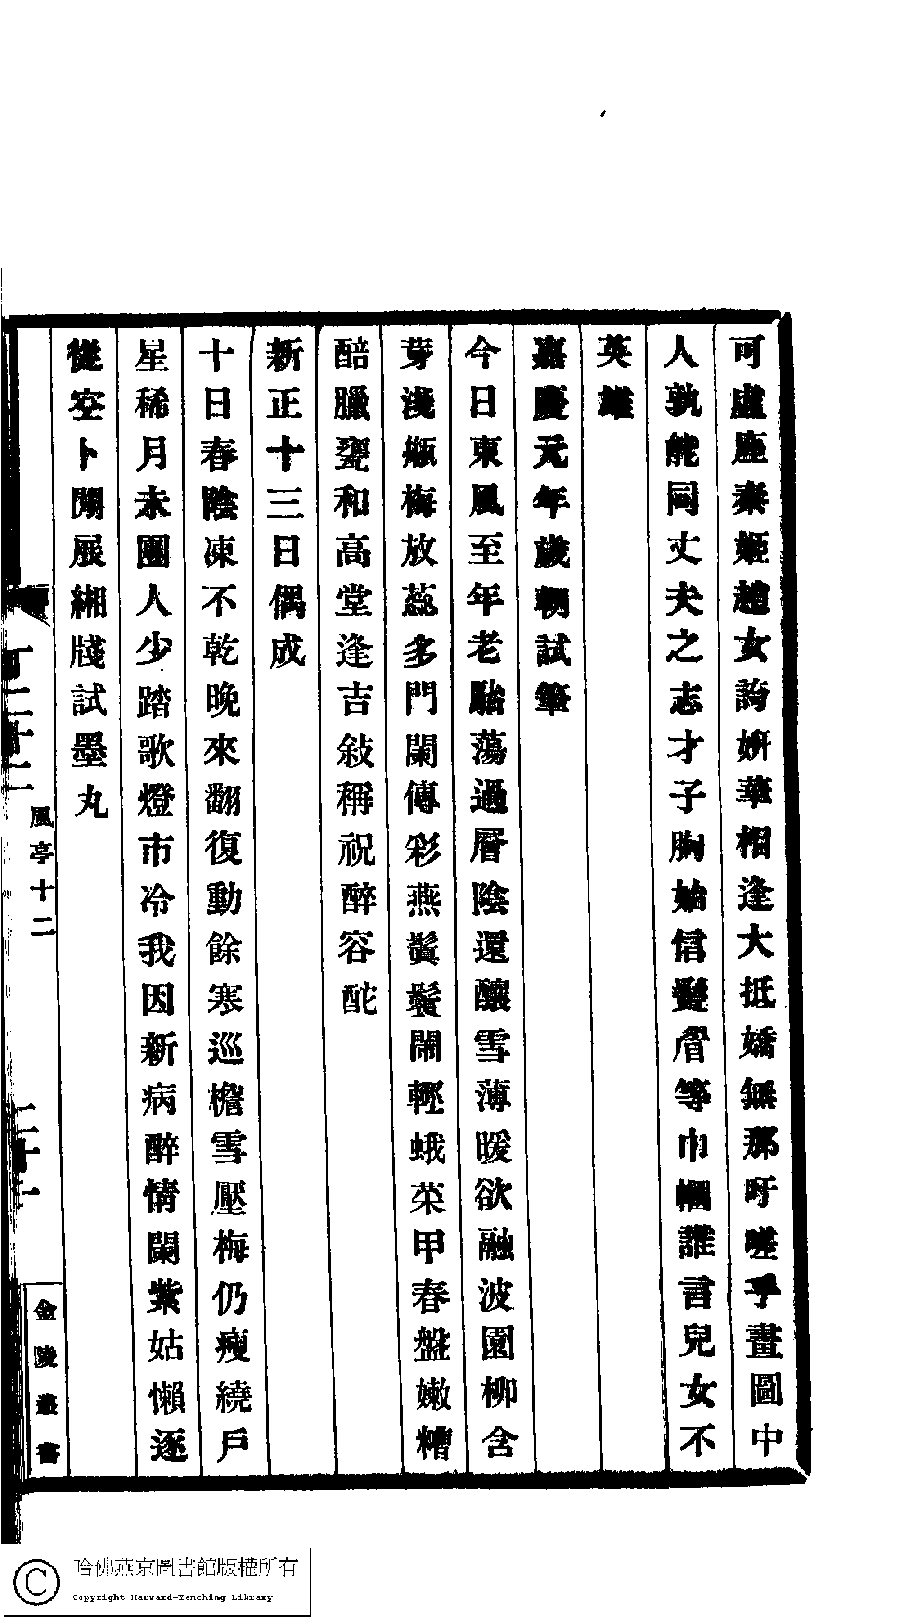 可虛座秦姬趙女誇妍華相逢大抵嬌無那吁嗟乎畫圖中
人孰能同丈夫之志才子胸始信鬢眉等巾幗誰言兒女不
英雄
嘉慶元年歲朝試筆
今日東風至年老駘蕩過層陰還釀雪薄暖欲融波園柳含
芽淺瓶梅放蕊多門闌傳彩燕鬢鬟鬧輕蛾菜甲春盤嫩糟
醅臘甕和高堂逢吉敍稱祝醉容酡
新正十三日偶成
十日春陰凍不乾晚來翻復動餘寒巡檐雪壓梅仍瘦繞戶
星稀月未團人少踏歌燈市冷我因新病醉情闌紫姑懶逐
從空卜閒展緗牋試墨丸
風亭十二
二十一
金陵叢書
哈佛燕京圖書館版權所有
Copyright Harvard-Yenching Library